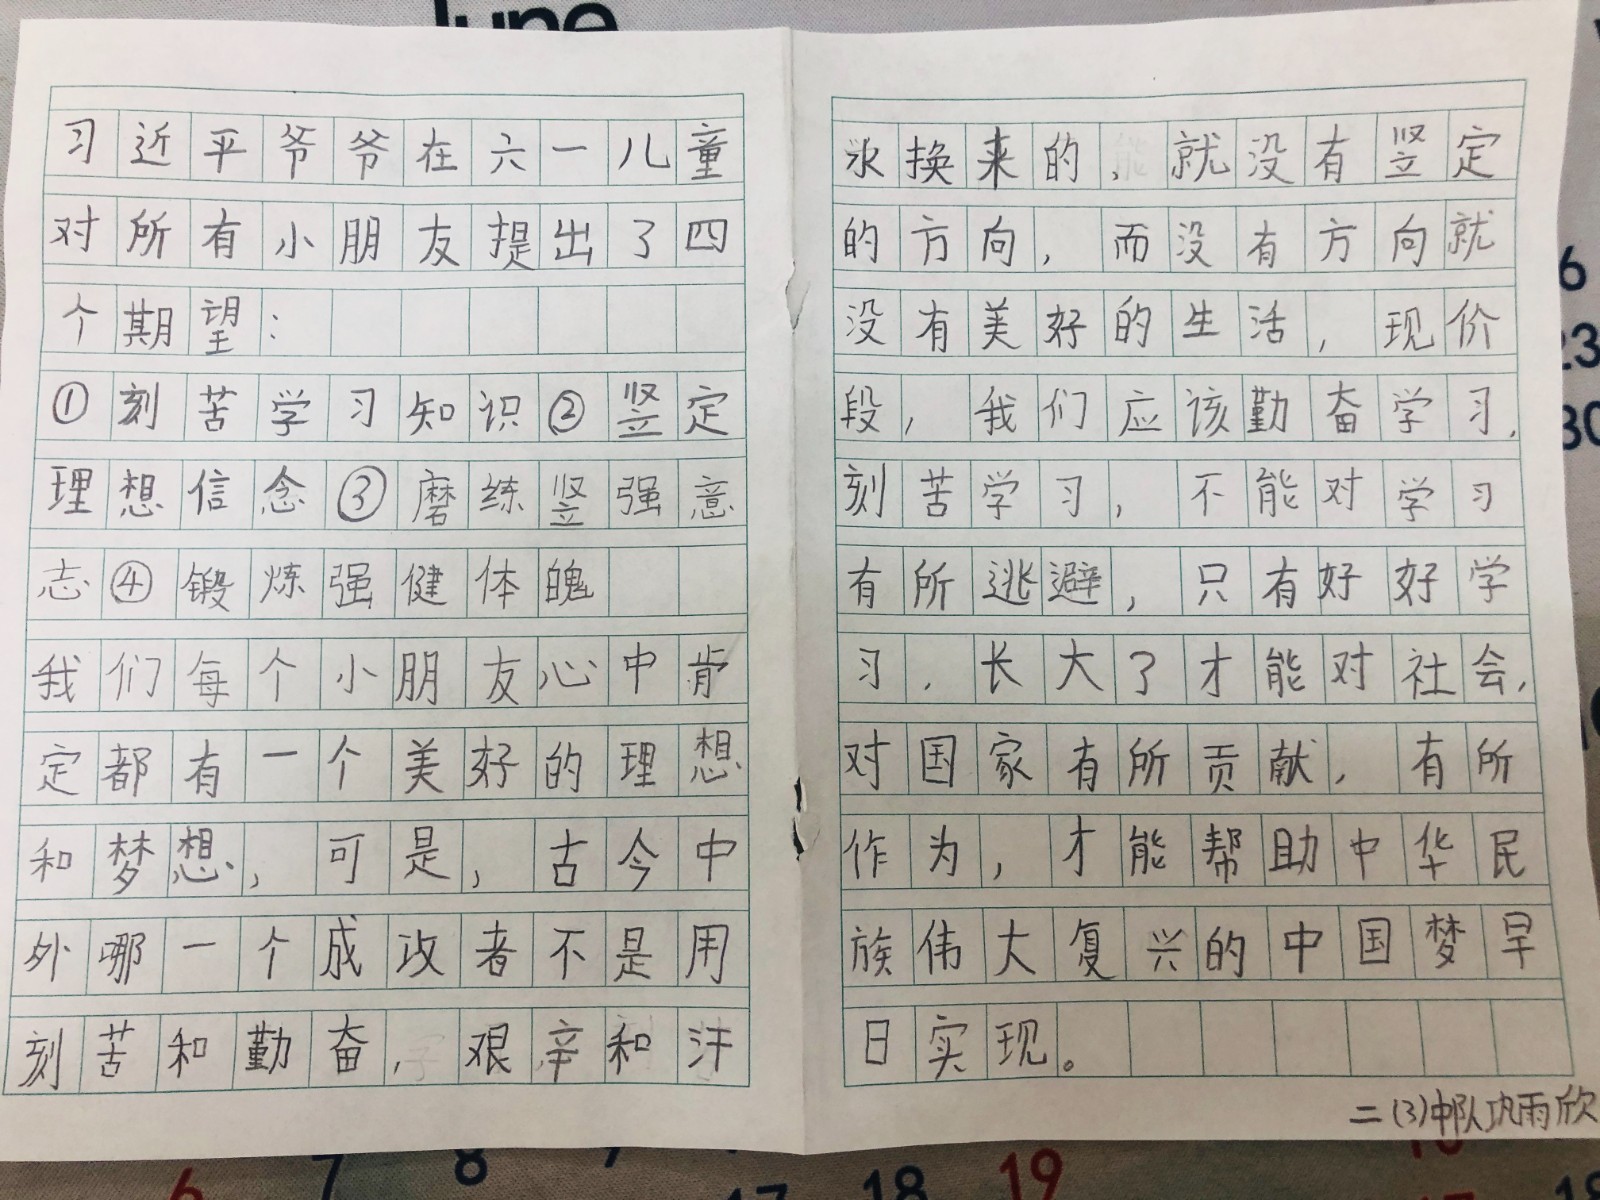 June
习近平爷爷在六一儿童
对所有小朋友提出了四
个期望：
①刻苦学习知识②竖定
理想信念③磨练竖强意
志④锻炼强健体魄
我们每个小朋友心中肯
定都有一个美好的理想
和梦想，可是，古今中
外哪一个成攻者不是用
刻苦和勤奋，艰辛和汗
水换来的，就没有竖定
的方向，而没有方向就
没有美好的生活，现价
段，我们应该勤奋学习，
刻苦学习，不能对学习
有所逃避，只有好好学
习，长大了才能对社会，
对国家有所贡献，有所
作为，才能帮助中华民
族伟大复兴的中国梦早
日实现。
二(3)中队巩雨欣
6
23
30
6 7 8 9 17 18 19